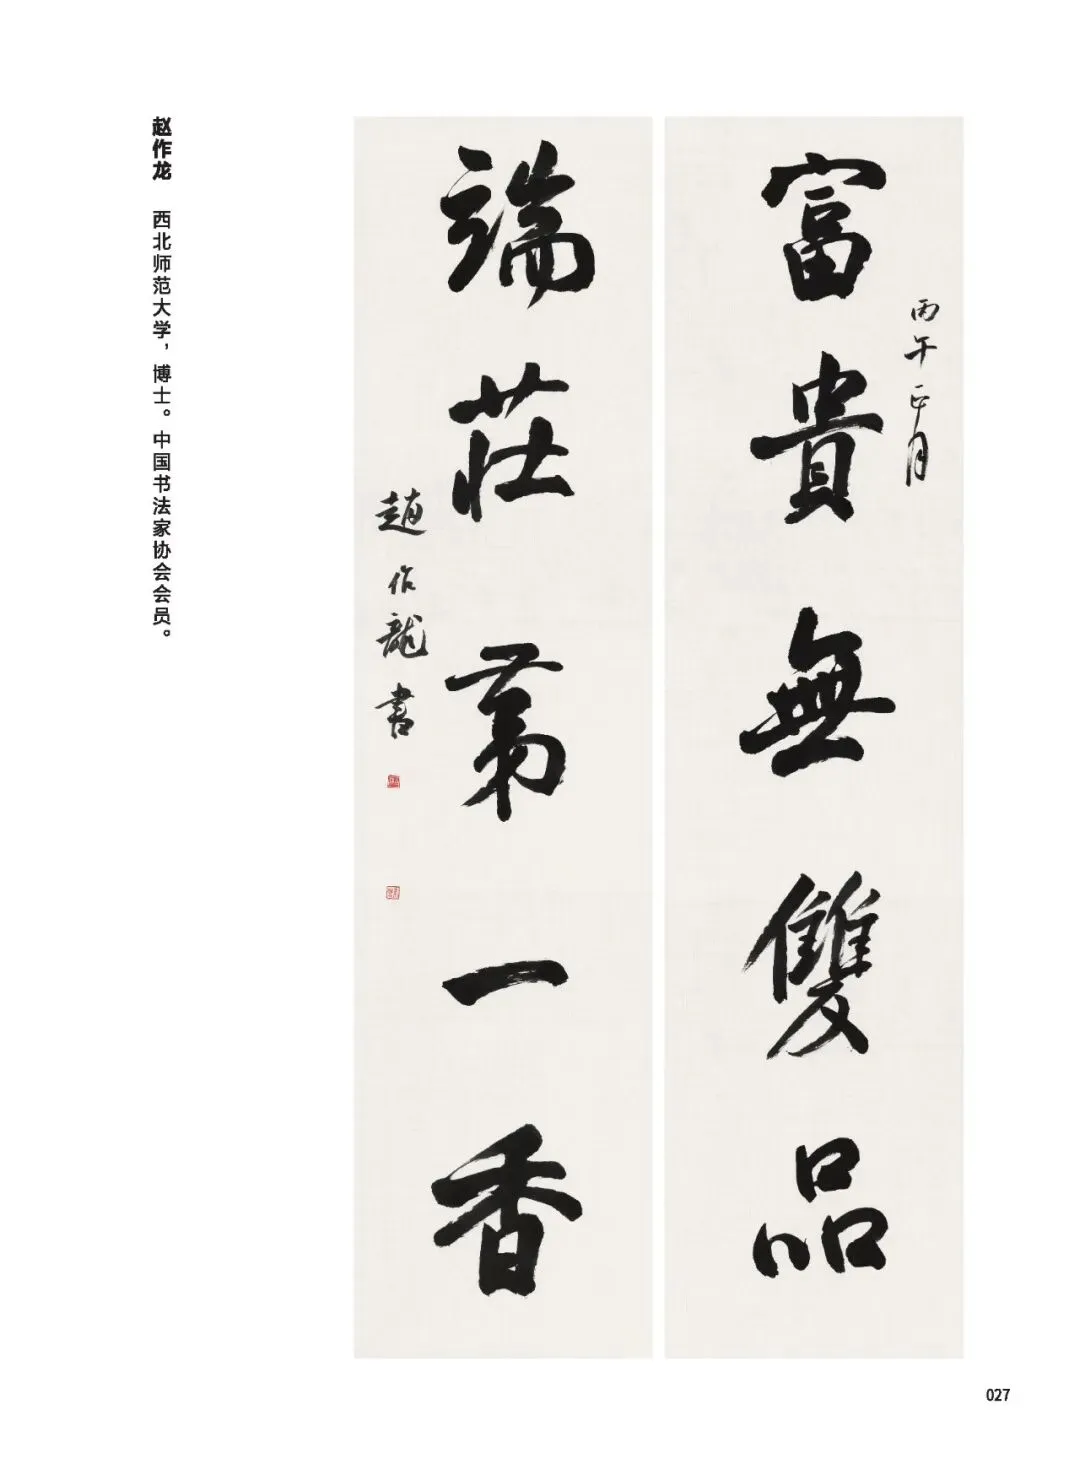 富貴無雙品
丙午正月
端莊第一香
趙作龍書
赵作龙 西北师范大学，博士。中国书法家协会会员。
027